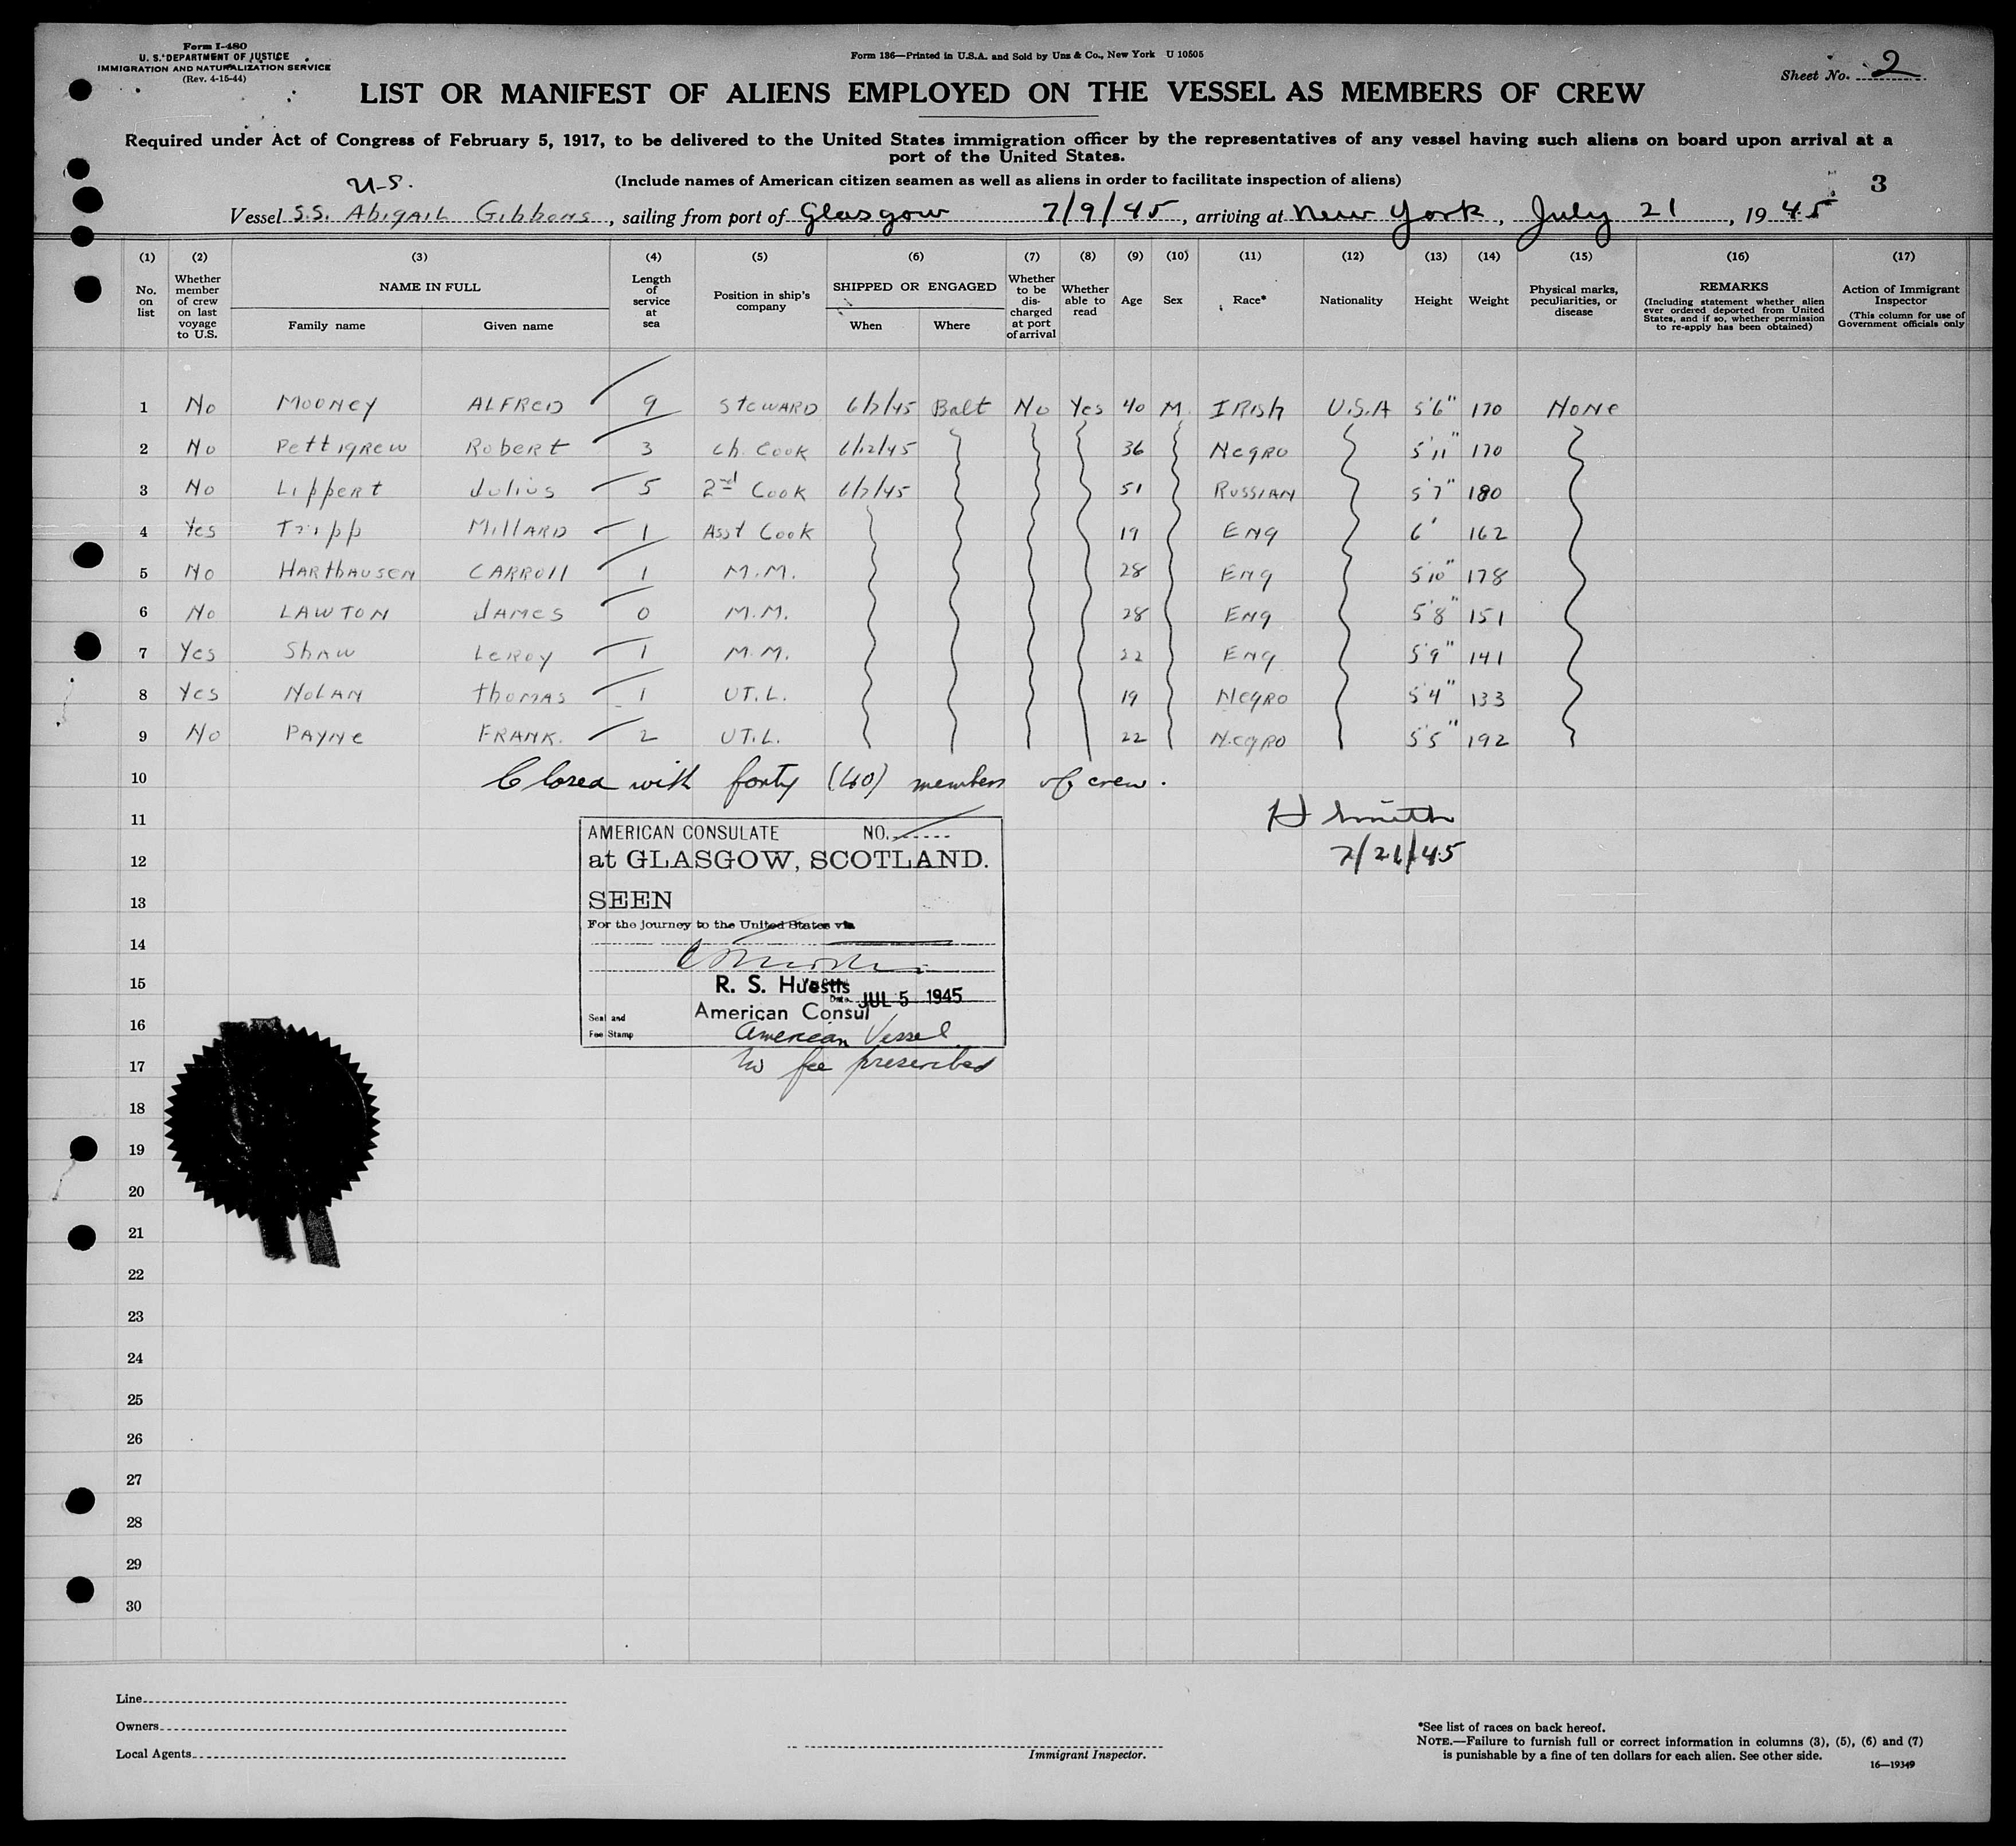 Form I-480
U. S. DEPARTMENT OF JUSTICE
IMMIGRATION AND NATURALIZATION SERVICE
(Rev. 4-15-44)
Form 136—Printed in U.S.A. and Sold by Unz & Co., New York U 10505
Sheet No. 2
LIST OR MANIFEST OF ALIENS EMPLOYED ON THE VESSEL AS MEMBERS OF CREW
Required under Act of Congress of February 5, 1917, to be delivered to the United States immigration officer by the representatives of any vessel having such aliens on board upon arrival at a
port of the United States.
(Include names of American citizen seamen as well as aliens in order to facilitate inspection of aliens)
3
U-S.
Vessel S.S. Abigail Gibbons, sailing from port of Glasgow 7/9/45, arriving at New York, July 21, 1945
(1) (2) (3) (4) (5) (6) (7) (8) (9) (10) (11) (12) (13) (14) (15) (16) (17)
No. on list
Whether member of crew on last voyage to U.S.
NAME IN FULL
Family name
Given name
Length of service at sea
Position in ship's company
SHIPPED OR ENGAGED
When
Where
Whether to be discharged at port of arrival
Whether able to read
Age
Sex
Race*
Nationality
Height
Weight
Physical marks, peculiarities, or disease
REMARKS
(Including statement whether alien ever ordered deported from United States, and if so, whether permission to re-apply has been obtained)
Action of Immigrant Inspector
(This column for use of Government officials only
1 No Mooney ALFRED 9 STEWARD 6/7/45 Balt No Yes 40 M. IRISH U.S.A 5'6" 170 NONE
2 No Pettigrew Robert 3 Ch. Cook 6/12/45 36 Negro 5'11" 170
3 No Lippert Julius 5 2nd Cook 6/7/45 51 RUSSIAN 5'7" 180
4 Yes Tripp MillARD 1 Asst Cook 19 ENG 6' 162
5 No HARTHAUSEN CARROll 1 M.M. 28 ENG 5'10" 178
6 No LAWTON JAMES 0 M.M. 28 ENG 5'8" 151
7 Yes Shaw LeRoy 1 M.M. 22 ENG 5'9" 141
8 Yes NOLAN Thomas 1 UT.L. 19 Negro 5'4" 133
9 No PAYNE FRANK. 2 UT.L. 22 Negro 5'5" 192
10 Closed with forty (40) members of crew.
11 H Smith
12 7/21/45
AMERICAN CONSULATE NO.
at GLASGOW, SCOTLAND.
13 SEEN
For the journey to the United States via
14
15 R. S. Huestis
Date JUL 5 1945
American Consul
16 Seal and
Fee Stamp
American Vessel
17 No fee prescribed
18
19
20
21
22
23
24
25
26
27
28
29
30
Line
Owners
Local Agents
Immigrant Inspector.
*See list of races on back hereof.
NOTE.—Failure to furnish full or correct information in columns (3), (5), (6) and (7)
is punishable by a fine of ten dollars for each alien. See other side.
16—19349